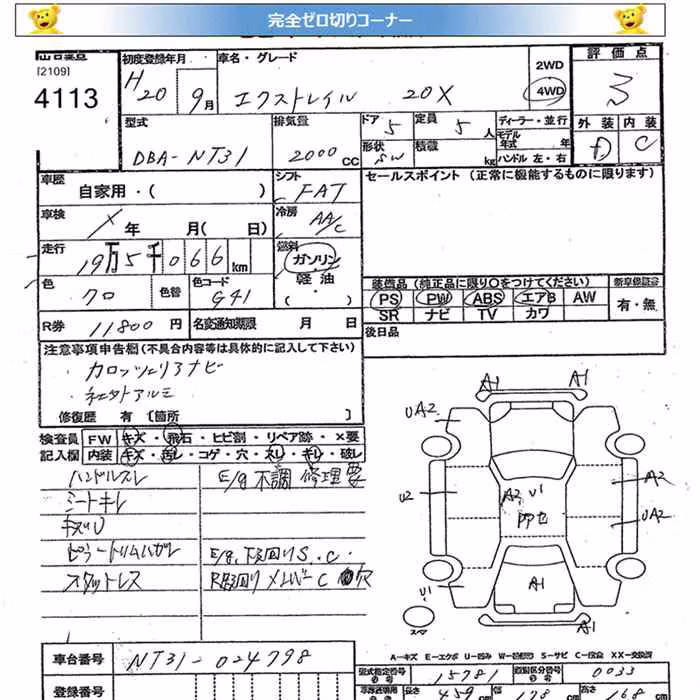 完全ゼロ切りコーナー
出品番号
[2109]
4113
初度登録年月
H20 9月
車名・グレード
エクストレイル 20X
2WD
4WD
評価点
3
型式
DBA-NT31
排気量
2000cc
ドア 5
定員 5人
形状 SW
積載 kg
ディーラー・並行
モデル年式 年
ハンドル 左・右
外装 内装
D C
車歴
自家用・( )
シフト
FAT
セールスポイント (正常に機能するものに限ります)
車検
× 年 月( 日)
冷房
AAC
走行
19万5千066km
燃料
ガソリン
軽油
( )
色
クロ
色替
色コード
G41
装備品 (純正品に限り○をつけてください)
新車保証書
PS PW ABS エアB AW
SR ナビ TV カワ
有・無
R券 11800円
名変通知期限 月 日
後日品
注意事項申告欄 (不具合内容等は具体的に記入して下さい)
カロッツェリアナビ
社外アルミ
修復歴 有 [箇所 ]
検査員
記入欄
FW キズ・飛石・ヒビ割・リペア跡・×要
内装 キズ・汚レ・コゲ・穴・スレ・キレ・破レ
ハンドルスレ
シートキレ
キズU
ピラートリムハガレ
スタットレス
E/g不調 修理要
E/g、下回りS.C.
R下回りメンバーC 穴
A1 A1
UA2
A2
U2
A2 U1
UA2
U1
A1
スマ
A-キズ E-エクボ U-凹み W-補修跡 S-サビ C-腐食 XX-交換済
車台番号 NT31-024798
登録番号
型式指定番号 15781
類別区分番号 0033
長さ 459
幅 178
高さ 168